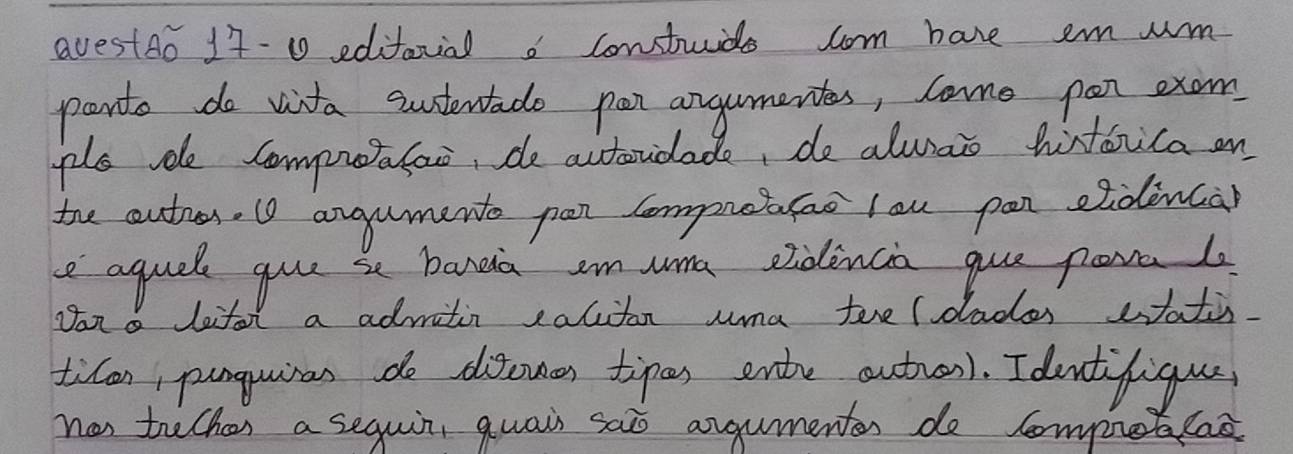 QuestÃo 17 - O editorial é construído com base em um
ponto de vista sustentado por argumentos, como por exem-
plo de comprovação, de autoridade, de alusão histórica en-
tre outros. O argumento por comprovação (ou por evidência)
é aquele que se baseia em uma evidência que possa le-
var o leitor a admitir e aceitar uma tese (dados estatís-
ticos, pesquisas de diversos tipos entre outros). Identifique,
nos trechos a seguir, quais são argumentos de comprovação.